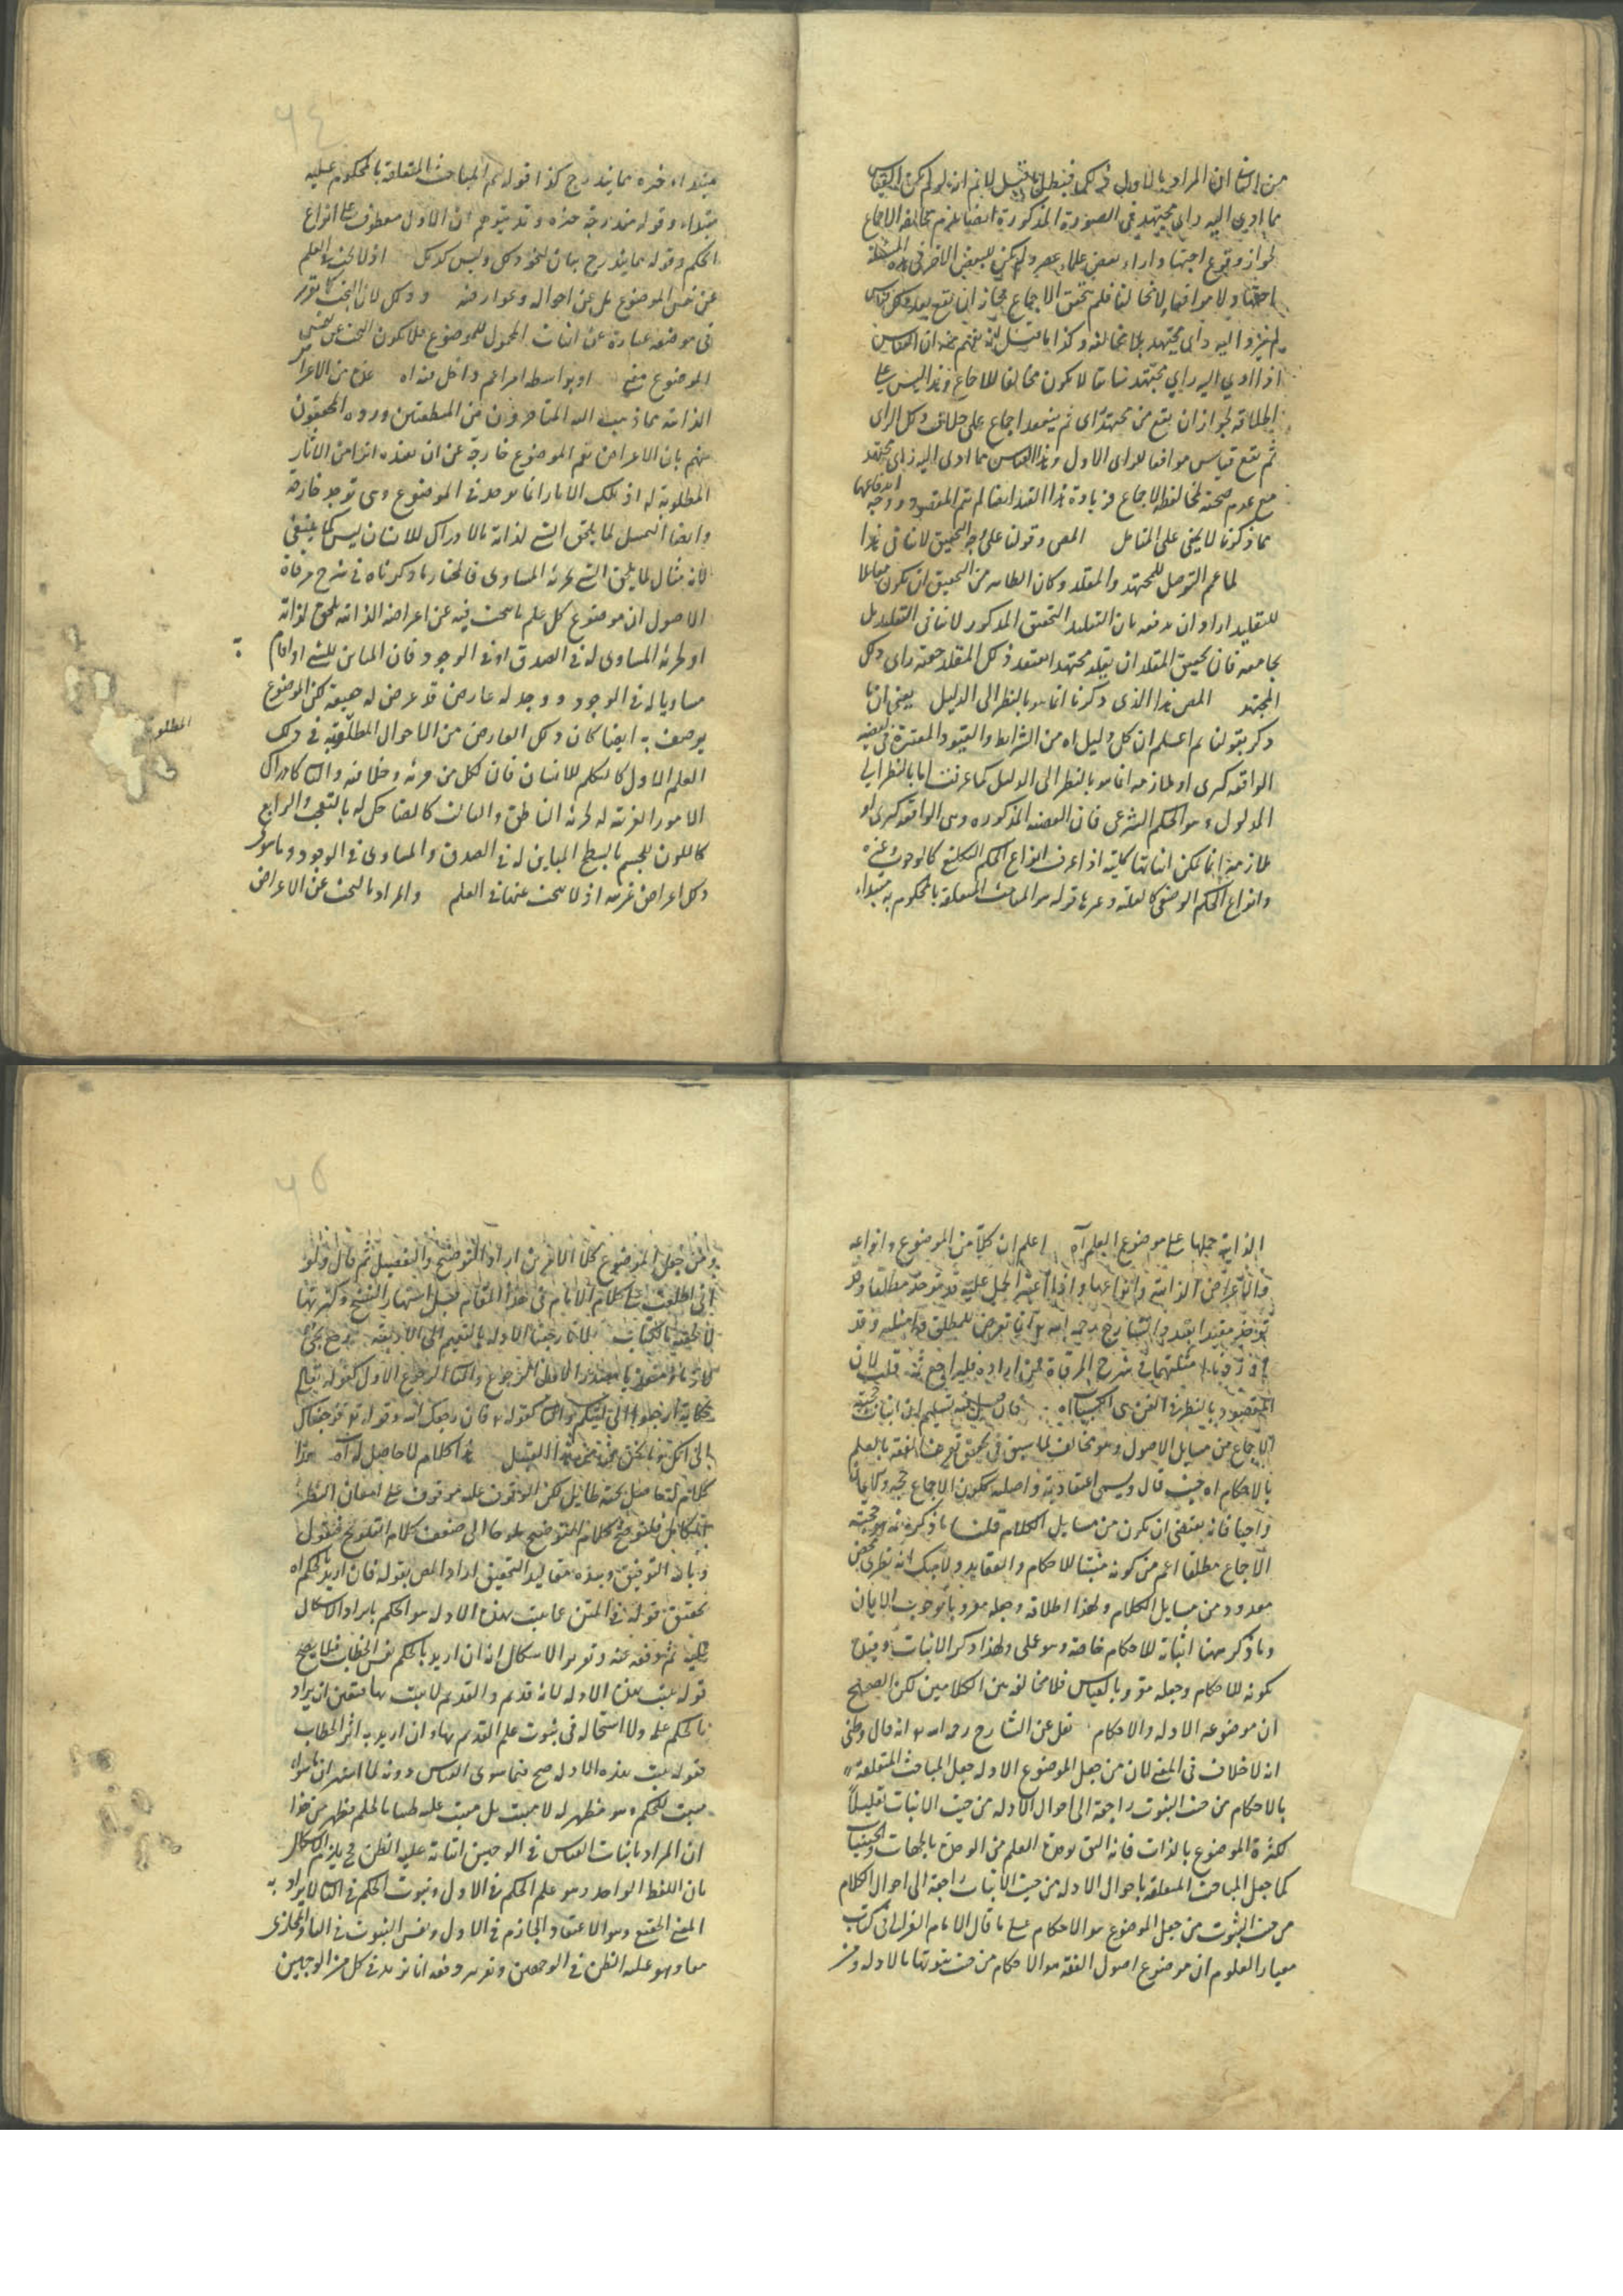 من الثاني ان المراد بالاول ذلك فبطل ما قيل لانم انه لو لم يكن القياس
مما ادى اليه راى مجتهد فى الصورة المذكورة ايضا يلزم مخالفة الاجماع
لجواز وقوع اجتهاد واراء بعض علماء عصر ولم يكن لبعض الاخر فى هذه المسئلة
اجتهاد لا موافقا ولا مخالفا فلم يتحقق الاجماع فجاز ان يقع بعد ذلك قياس
لم يؤد اليه راى مجتهد بلا مخالفة وكذا ما قيل انه يفهم منه ان القياس
اذا ادى اليه راى مجتهد سابقا لا يكون مخالفا للاجماع وهذا ليس على
اطلاقه لجواز ان يقع من مجتهد راى ثم ينعقد اجماع على خلاف ذلك الراى
ثم يقع قياس موافقا للراى الاول وهذا القياس مما ادى اليه راى مجتهد
مع عدم صحته لمخالفة الاجماع فزيادة هذا القيد ايضا لم تتم المقصود ووجه اندفاعها
مما ذكرنا لا يخفى على المتامل المص وقولنا على وجه التحقيق لا ينافى هذا
لما عمم التوصل للمجتهد والمقلد وكان الظاهر من التحقيق ان يكون مقابلا
للتقليد اراد ان يدفعه بان التقليد التحقيق المذكور لا ينافى التقليد بل
يجامعه فان تحقيق المقلد ان يقلد مجتهدا يعتقد ذلك المقلد حقية راى ذلك
المجتهد المص هذا الذى ذكرنا انما هو بالنظر الى الدليل يعنى ان ما
ذكر بقولنا ثم اعلم ان كل دليل اه من الشرايط والقيود المعتبرة فى القضية
الواقعة كبرى او ملازمة انما هو بالنظر الى الدليل كما عرفت اما بالنظر الى
المدلول وهو الحكم الشرعى فان القضية المذكورة وهى الواقعة كبرى او
ملازمة انما يمكن اثباتها كلية اذا عرف انواع الحكم التكليفى كالوجوب وغيره
وانواع الحكم الوضعى كالعلية وغيرها قوله هو المباحث المتعلقة بالمحكوم به مبتداء
مبتداء خبره مما يندرج كذا قوله ثم المباحث المتعلقة بالمحكوم عليه
مبتداء وقوله مندرجة خبره وقد يتوهم ان الاول معطوف على انواع
الحكم وقوله مما يندرج بيان لنحو ذلك وليس كذلك اذ لا يبحث فى العلم
عن نفس الموضوع بل عن احواله وعوارضه وذلك لان البحث كما تقرر
فى موضعه عبارة عن اثبات المحمول للموضوع فلا يكون البحث عن نفس
الموضوع منه او بواسطة امر اعم داخل فيه اه عده من الاعراض
الذاتية مما ذهب اليه المتاخرون من المنطقيين ورده المحققون
منهم بان الاعراض تعم الموضوع خارجة عن ان تفيده اثرا من الاثار
المطلوبة له اذ تلك الاثار انما توجد فى الموضوع وهى توجد خارجه
وايضا التمثيل لما يلحق الشئ لذاته بالادراك للانسان ليس كما ينبغى
لانه مثال لما يلحق الشئ لجزئه المساوى فالمختار ما ذكرناه فى شرح مرقاة
الاصول ان موضوع كل علم ما يبحث فيه عن اعراضه الذاتية يلحق لذاته
او لجزئه المساوى له فى الصدق او فى الوجود فان المباين للشئ اذا قام
مساويا له فى الوجود ووجد له عارض قد عرض له حقيقة لكن الموضوع
يوصف به ايضا كان ذلك العارض من الاحوال المطلوبة فى ذلك
المطلوبة
العلم الاول كالتكلم للانسان فان لكل من جزئه وخلافه والثانى كادراك
الامور الغريبة له لجزئه الناطق والثالث كالضاحك له بالتعجب والرابع
كاللون للجسم بالسطح المباين له فى الصدق والمساوى فى الوجود وما سوى
ذلك اعراض غريبة اذ لا يبحث عنها فى العلم والمراد بالبحث عن الاعراض
الذاتية حملها على موضوع العلم اه اعلم ان كلا من الموضوع وانواعه
والاعراض الذاتية وانواعها واذا اعتبر الحمل عليه قد توخذ مطلقا وقد
توخذ مقيدا بقيد والشارح رحمه الله انما تعرض للمطلق وامثلته وقد
اوردنا امثلتهما فى شرح المرقاة فمن اراده فليراجع ثمه قلت لان
المقصود بالنظر فى الفن هى الكسبيات اه فان قيل فيه تسليم ان اثبات حجية
الاجماع من مسايل الاصول وهو مخالف لما سبق فى تحقيق تعريف الفقه بالعلم
بالاحكام اه حيث قال ويسمى اعتقادية واصلية ككون الاجماع حجة والايمان
واجبا فانه يقتضى ان يكون من مسايل الكلام قلنا ما ذكره ثمه هو حجية
الاجماع مطلقا اعم من كونه مثبتا للاحكام والعقايد ولا شك انه نظرى محض
معدود من مسايل الكلام ولهذا اطلقه وجعله مقرونا بوجوب الايمان
وما ذكر ههنا اثباته للاحكام خاصة وهو عملى ولهذا ذكر الاثبات وقيده
بكونه للاحكام وجعله مقرونا بالقياس فلا مخالفة بين الكلامين لكن الصحيح
ان موضوعه الادلة والاحكام نقل عن الشارح رحمه الله انه قال وظنى
انه لا خلاف فى المعنى لان من جعل الموضوع الادلة جعل المباحث المتعلقة
بالاحكام من حيث الثبوت راجعة الى احوال الادلة من حيث الاثبات تقليلا
لكثرة الموضوع بالذات فانه اليق بوحدة العلم من الوحدة بالجهات والحيثيات
كما جعل المباحث المتعلقة باحوال الادلة من حيث الاثبات راجعة الى احوال الكلام
من حيث الثبوت من جعل الموضوع هو الاحكام على ما قال الامام الغزالى فى كتاب
معيار العلوم ان موضوع اصول الفقه هو الاحكام من حيث ثبوتها بالادلة ومن
ومن جعل الموضوع كلا الامرين اراد التوضيح والتفصيل ثم قال ولو
انى اطلعت على كلام الامام فى هذا المقام قبل اشتهار النسخ وكثرتها
لالحقته بالكتاب لانا رجعنا الادلة بالتعميم الى الاربعة رجع يجئ
لازما ومتعديا فمصدر الاول الرجوع والثانى الرجع الاول كقوله تعالى
حكاية ارجعوا الى ابيكم والثانى كقوله فان رجعك الله وقوله فرجعناك
الى امك وما نحن فيه من هذا القبيل هذا كلام لا حاصل له اه هذا
كلام له حاصل تحته طايل لكن الوقوف عليه موقوف على امعان النظر
الكامل فلنوضح كلام التوضيح ملوحا الى ضعف كلام التلويح فنقول
وبالله التوفيق وبيده مقاليد التحقيق اراد المص بقوله فان اريد بالحكم اه
تحقيق قوله فى المتن عما يثبت بهذه الادلة هو الحكم بايراد الاشكال
عليه ثم دفعه عنه وتقرير الاشكال انه ان اريد بالحكم نفس الخطاب فلا يصح
قوله يثبت بهذه الادلة لانه قديم والقديم لا يثبت بها فتعين ان يراد
بالحكم علمه ولا استحالة فى ثبوت علم القديم بها وان اريد به اثر الخطاب
فقوله يثبت بهذه الادلة صح فيما سوى القياس دونه لما اشتهر ان ما سواه
مثبت للحكم وهو مظهر له لا مثبت بل مثبت غلبة ظننا بالحكم فظهر من هذا
ان المراد باثبات القياس فى الوجهين اثباته غلبة الظن فيلزم الاشكال
بان اللفظ الواحد وهو علم الحكم فى الاول وثبوت الحكم فى الثانى لا يراد به
المعنى الحقيقى وهو الاعتقاد الجازم فى الاول ونفس الثبوت فى الثانى والمجازى
معا وهو غلبة الظن فى الوجهين وتقرير دفعه انا نريد فى كل من الوجهين